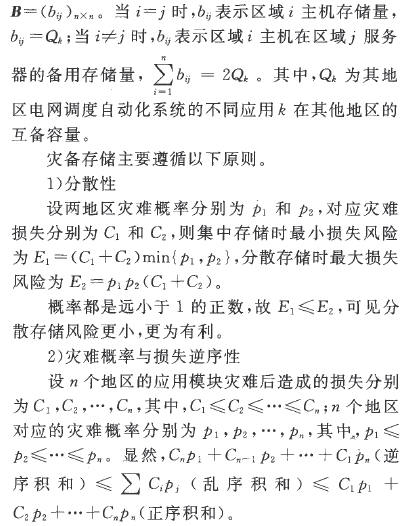 B=(bᵢⱼ)ₙ×ₙ。当 i=j 时,bᵢⱼ表示区域 i 主机存储量,
bᵢⱼ=Qₖ;当 i≠j 时,bᵢⱼ表示区域 i 主机在区域 j 服务
器的备用存储量, ∑ⁿᵢ₌₁ bᵢⱼ = 2Qₖ 。其中,Qₖ 为其地
区电网调度自动化系统的不同应用 k 在其他地区的
互备容量。
灾备存储主要遵循以下原则。
1)分散性
设两地区灾难概率分别为 p₁ 和 p₂,对应灾难
损失分别为 C₁ 和 C₂,则集中存储时最小损失风险
为 E₁=(C₁+C₂)min{p₁,p₂},分散存储时最大损失
风险为 E₂=p₁p₂(C₁+C₂)。
概率都是远小于 1 的正数,故 E₁≤E₂,可见分
散存储风险更小,更为有利。
2)灾难概率与损失逆序性
设 n 个地区的应用模块灾难后造成的损失分别
为 C₁,C₂,…,Cₙ,其中,C₁≤C₂≤…≤Cₙ;n 个地区
对应的灾难概率分别为 p₁,p₂,…,pₙ,其中,p₁≤
p₂≤…≤pₙ。显然,Cₙp₁+Cₙ₋₁p₂+…+C₁pₙ(逆
序积和)≤∑Cᵢpⱼ(乱序积和)≤C₁p₁+
C₂p₂+…+Cₙpₙ(正序积和)。